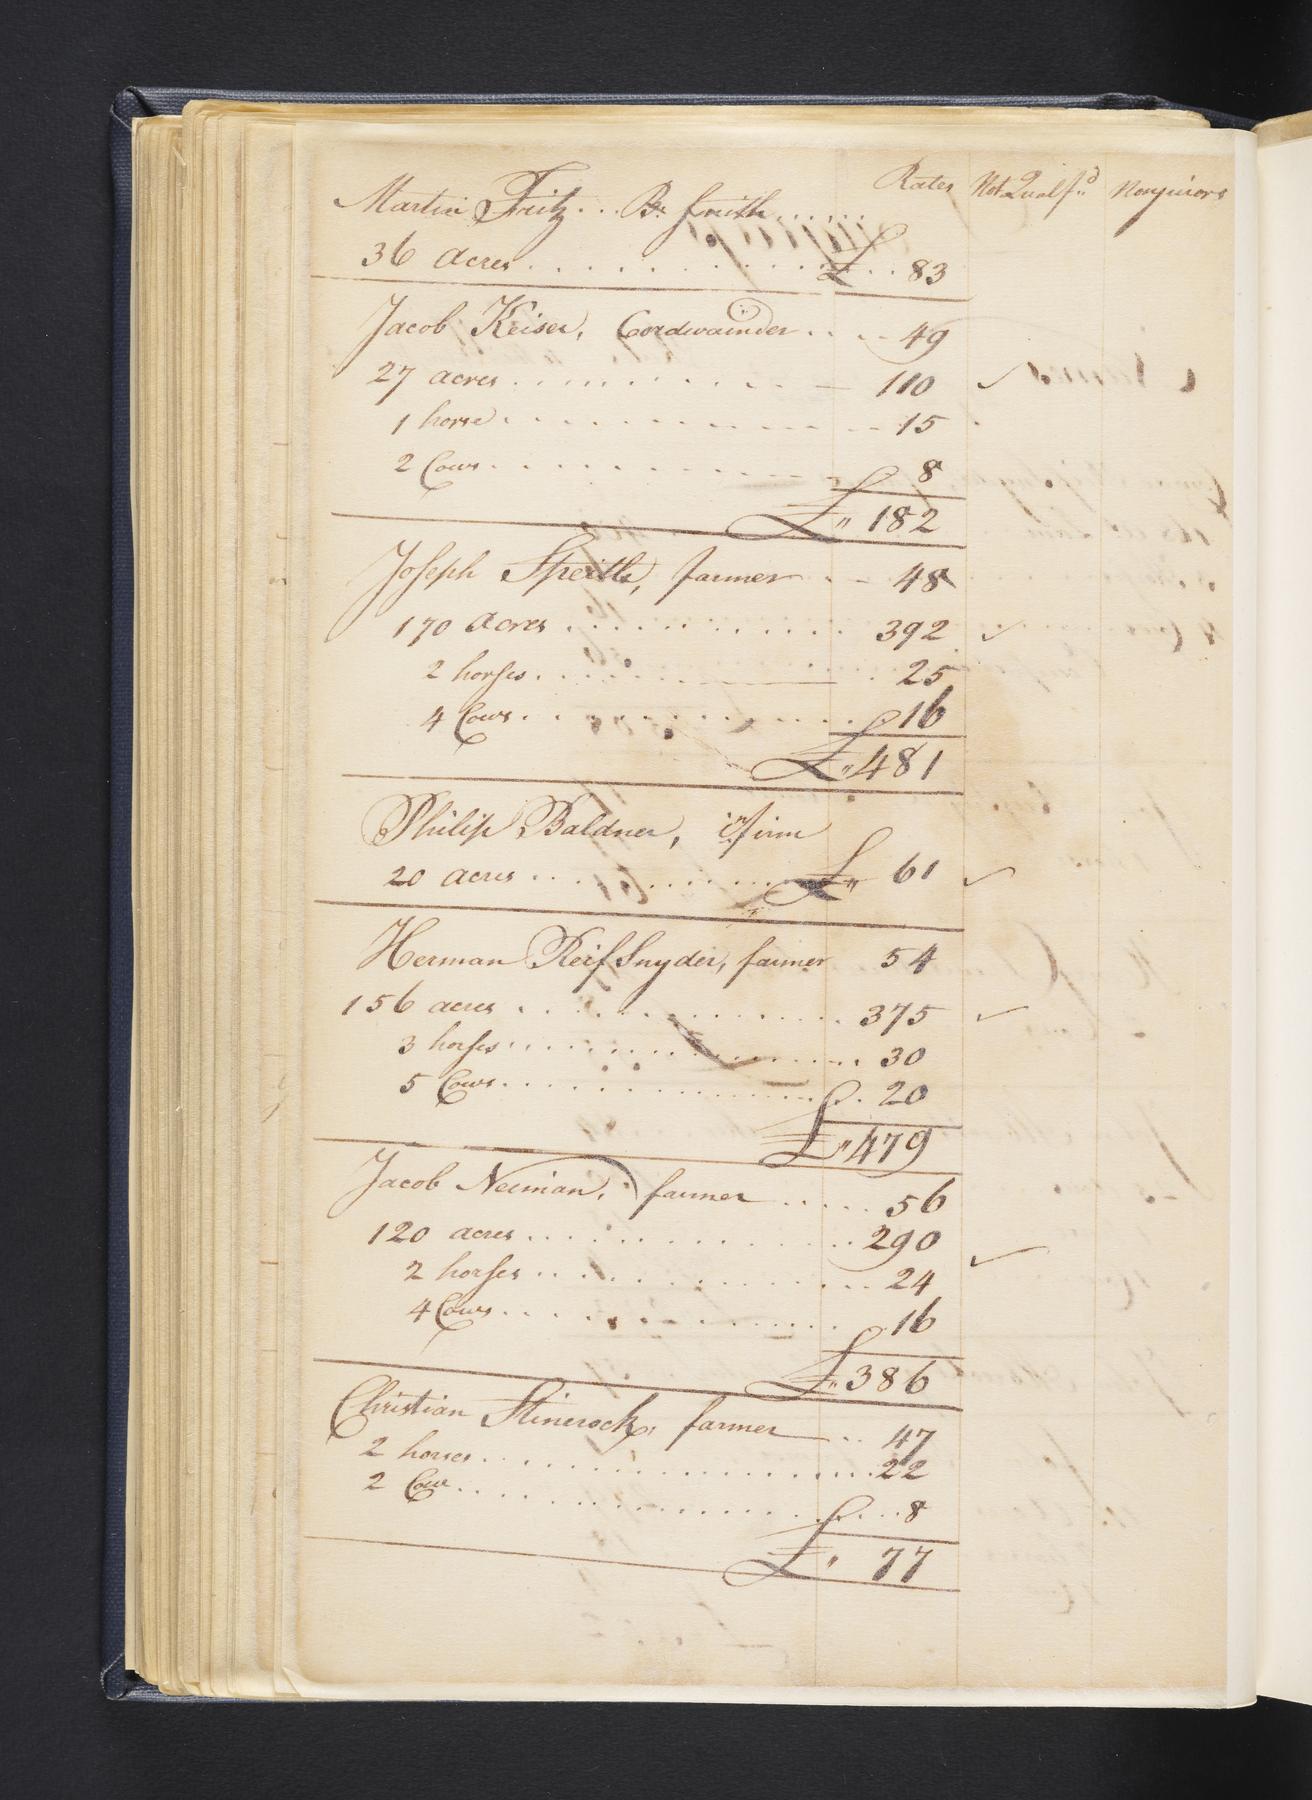 Rates Not Qualf.d Nonjurors
Martin Fritz... B. Smith......
36 acres............ £..83
Jacob Keiser, Cordwainder....49
27 acres............ 110 ✓
1 horse............15
2 Cows............ 8
£" 182
Joseph Speitle, farmer... 48
170 acres............ 392 ✓
2 horses............ 25
4 Cows............ 16
£"481
Philip Baldner, infirm
20 acres............ £" 61 ✓
Herman Reifsnyder, farmer 54
156 acres............ 375 ✓
3 horses............ 30
5 Cows............ 20
£"479
Jacob Neiman, farmer..... 56
120 acres............ 290 ✓
2 horses............ 24
4 Cows............ 16
£"386
Christian Stinerock, farmer.. 47
2 horses............22
2 Cow............8
£" 77